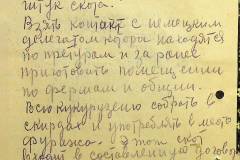 штук скота.
Взять контакт с немецким
делегатом которы находятся
по претурам и за ранее
приготовить помещении
по фермам и общин.
Всю кукурузено собрать в
скирдах и употреблять в место
фуража. Этот скот
входит в составленную договор